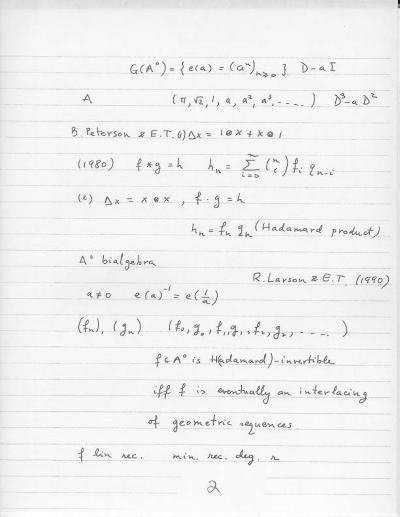 G(A°) = { e(a) = (aⁿ)ₙ≥₀ }. D-aI
A (π, √2, 1, a, a², a³, .....) D³-aD²
B. Peterson & E.T. (1) Δx = 1⊗x + x⊗1
(1980) f * g = h hₙ = Σᵢ₌₀ⁿ (ⁿᵢ) fᵢ gₙ₋ᵢ
(2) Δx = x⊗x, f · g = h
hₙ = fₙ gₙ (Hadamard product)
A° bialgebra
R. Larson & E.T. (1990)
a≠0 e(a)⁻¹ = e(1/a)
(fₙ), (gₙ) (f₀, g₀, f₁, g₁, f₂, g₂, .....)
f∈A° is H(adamard)-invertible
iff f is eventually an interlacing
of geometric sequences.
f lin rec. min. rec. deg. r
2